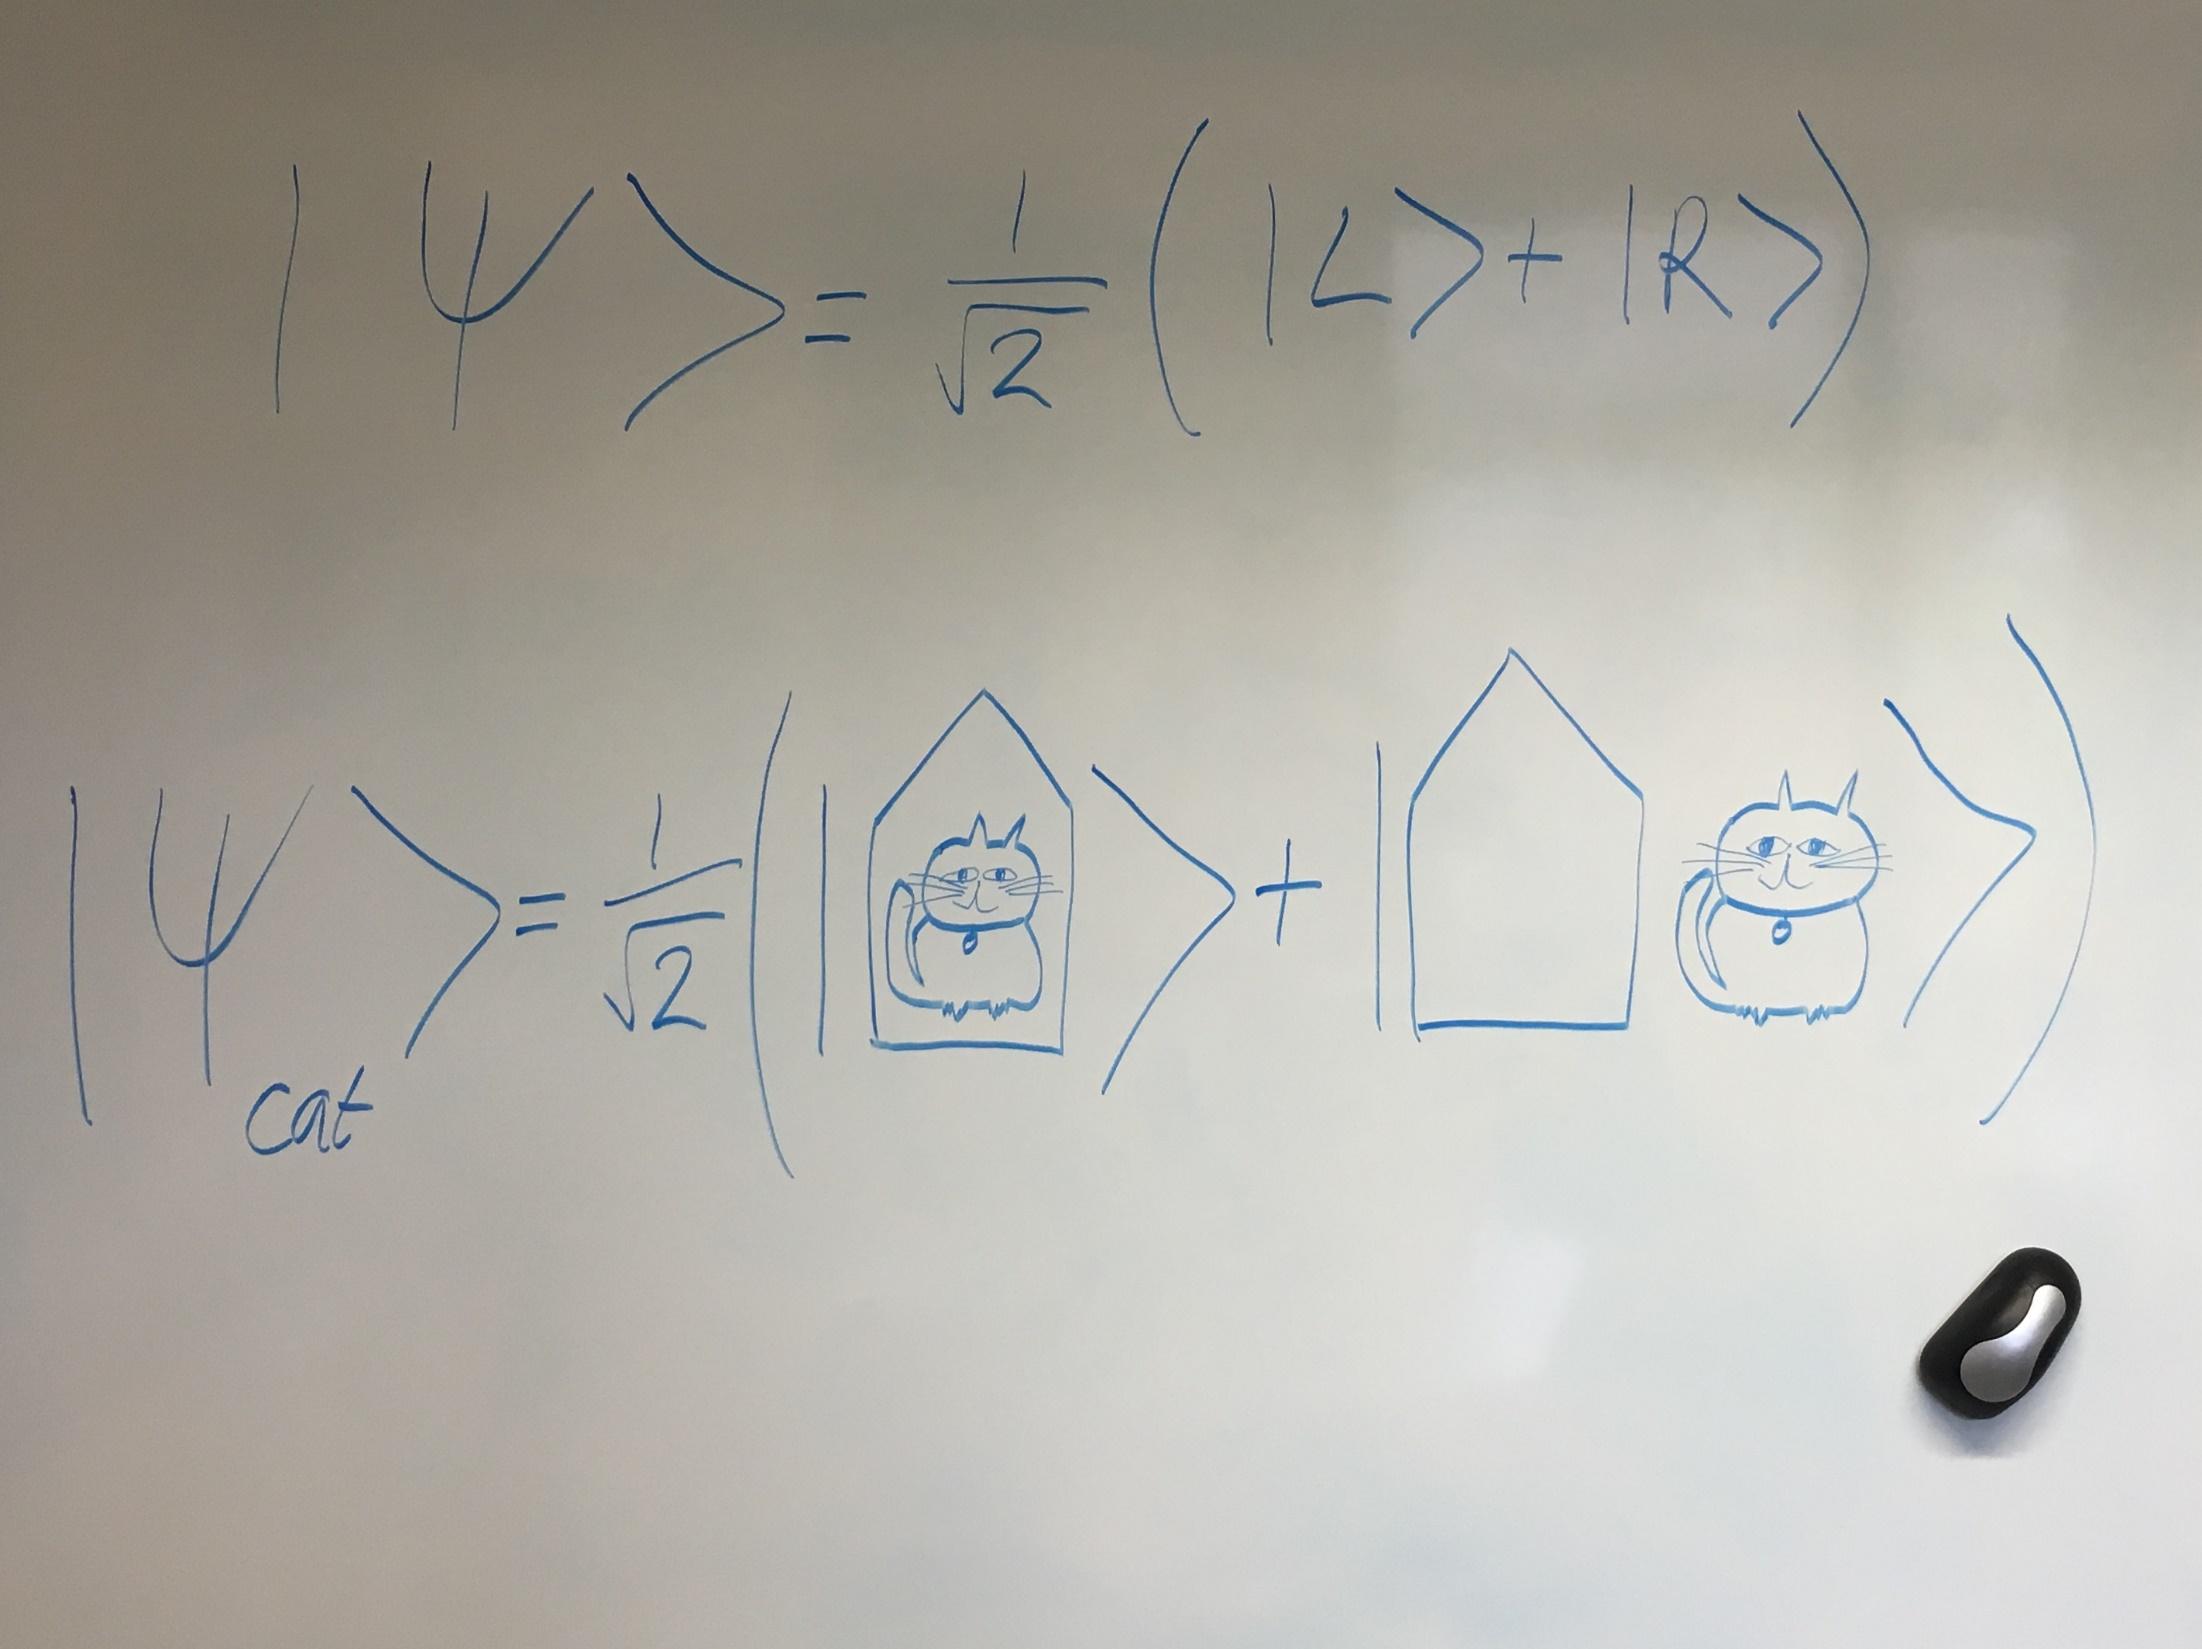 |Ψ> = 1/√2 (|L> + |R>)
|Ψcat> = 1/√2 (| > + | >)